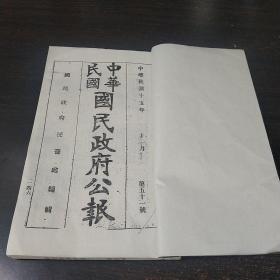 中華民國十五年
十一月
第五十二號
中華
民國
國民政府公報
國民政府秘書處編輯